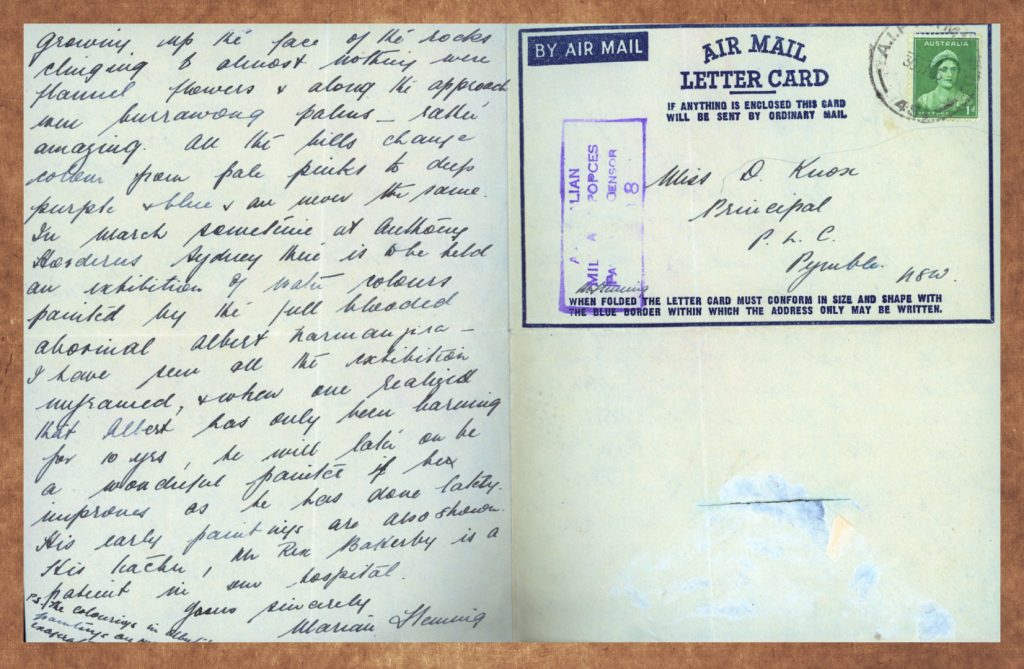 growing up the face of the rocks
clinging to almost nothing were
flannel flowers & along the approach
were burrawong palms – rather
amazing. All the hills change
colour from pale pinks to deep
purple & blue & are never the same.
In March sometime at Anthony
Horderns Sydney there is to be held
an exhibition of water colours
painted by the full blooded
aboriginal Albert Narmanjira –
I have seen all the exhibition
unframed, & when one realized
that Albert has only been learning
for 10 yrs, he will later on be
a wonderful painter if he
improves as he has done lately.
His early paintings are also shown.
His teacher, Mr Rex Bakerby is a
patient in our hospital.
Yours sincerely
Marian Fleming
P.S. The colourings in
paintings are
BY AIR MAIL
AIR MAIL
LETTER CARD
IF ANYTHING IS ENCLOSED THIS CARD
WILL BE SENT BY ORDINARY MAIL
AUSTRALIA
1d
LIAN
MIL FORCES
8
Miss D. Knox
Principal
P. L. C.
Pymble.
NSW.
WHEN FOLDED THE LETTER CARD MUST CONFORM IN SIZE AND SHAPE WITH
THE BLUE BORDER WITHIN WHICH THE ADDRESS ONLY MAY BE WRITTEN.